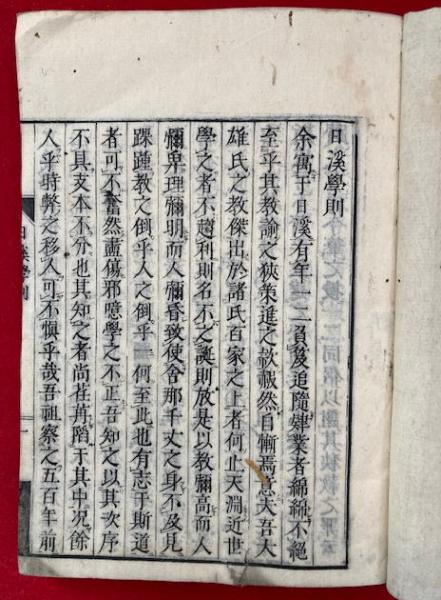 日溪學則
余寓于日溪有年一二負笈追隨肄業者綿綿不絕
至乎其教諭之狹策進之欵赧然自慚焉意夫吾大
雄氏之教傑出於諸氏百家之上者何止天淵近世
學之者不趨利則名不之誕則放是以教彌高而人
彌卑理彌明而人彌昏致使舍那千丈之身不及見
踝踵教之倒乎人之倒乎一何至此也有志于斯道
者可不奮然盡傷邪噫學之不正吾知之以其次序
不具支本不分也其知之者尚荏苒陷于其中況餘
人乎時弊之移人可不愼乎哉吾祖察之五百年前
日溪學則